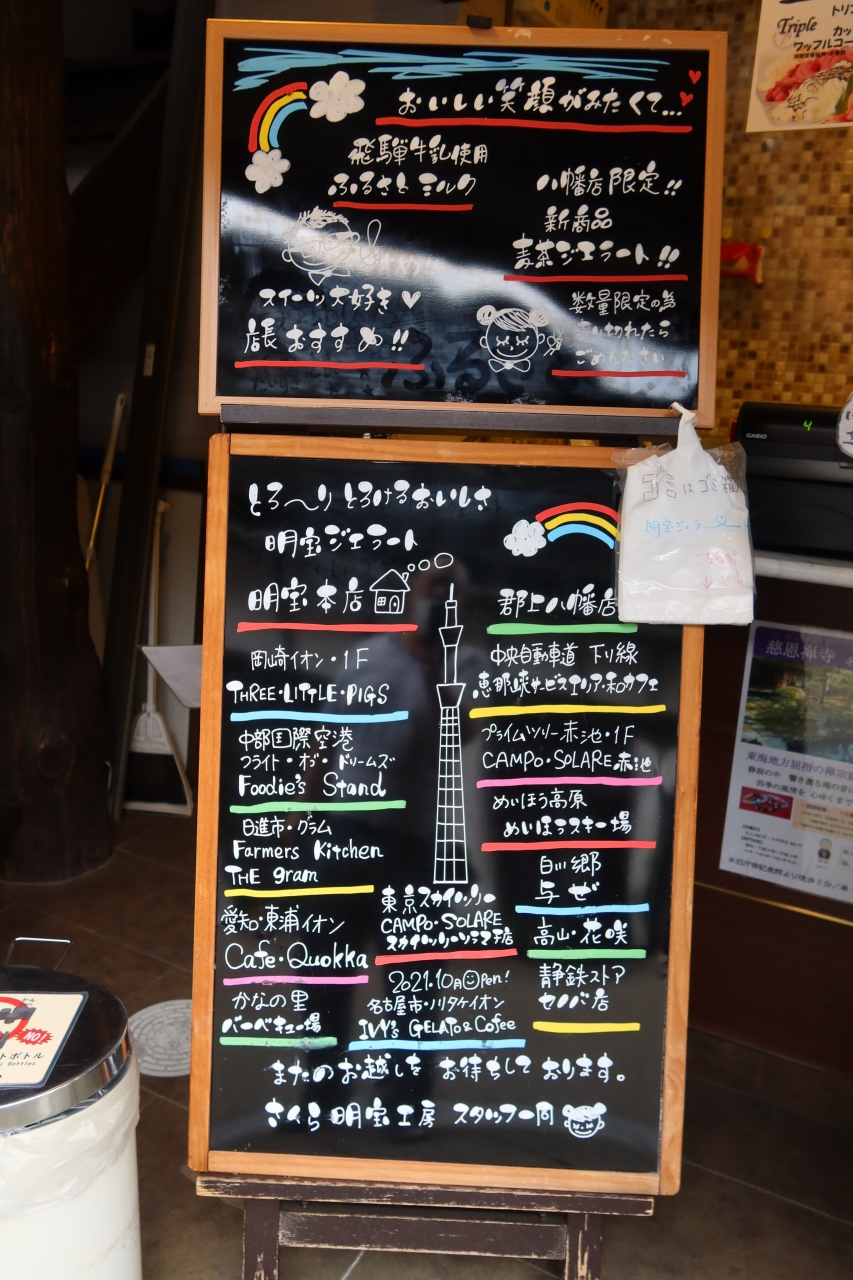 Triple
ワッフルコーン
おいしい笑顔がみたくて...
飛騨牛乳使用
ふるさとミルク
八幡店限定!!
新商品
麦茶ジェラート!!
スイーツ大好き♥
店長おすすめ!!
数量限定の為
売り切れたら
ごめんなさい
CASIO
4
とろ〜りとろけるおいしさ
明宝ジェラート
明宝本店
岡崎イオン・1F
THREE・LITTLE・PIGS
中部国際空港
フライト・オブ・ドリームズ
Foodie's Stand
日進市・グラム
Farmers Kitchen
THE gram
愛知・東浦イオン
Cafe・Quokka
かなの里
バーベキュー場
東京スカイツリー
CAMPO・SOLARE
スカイツリーソラマチ店
2021.10月Open!
名古屋市・ノリタケイオン
IVY's GELATO & Cofee
郡上八幡店
中央自動車道 下り線
恵那峡サービスエリア・和カフェ
プライムツリー赤池・1F
CAMPO・SOLARE赤池
めいほう高原
めいほうスキー場
白川郷
与ぜ
高山・花咲
静鉄ストア
セノバ店
またのお越しを お待ちして おります。
さくら明宝工房 スタッフ一同
ゴミはゴミ箱
明宝ジェラート
慈恩禅寺
東海地方屈指の禅宗
静寂の中 響き渡る滝の音に
四季の風情を 心ゆくまで
NO!
トボトル